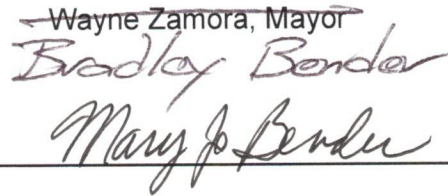 Wayne Zamora, Mayor
Bradley Bender
Mary Jo Bender